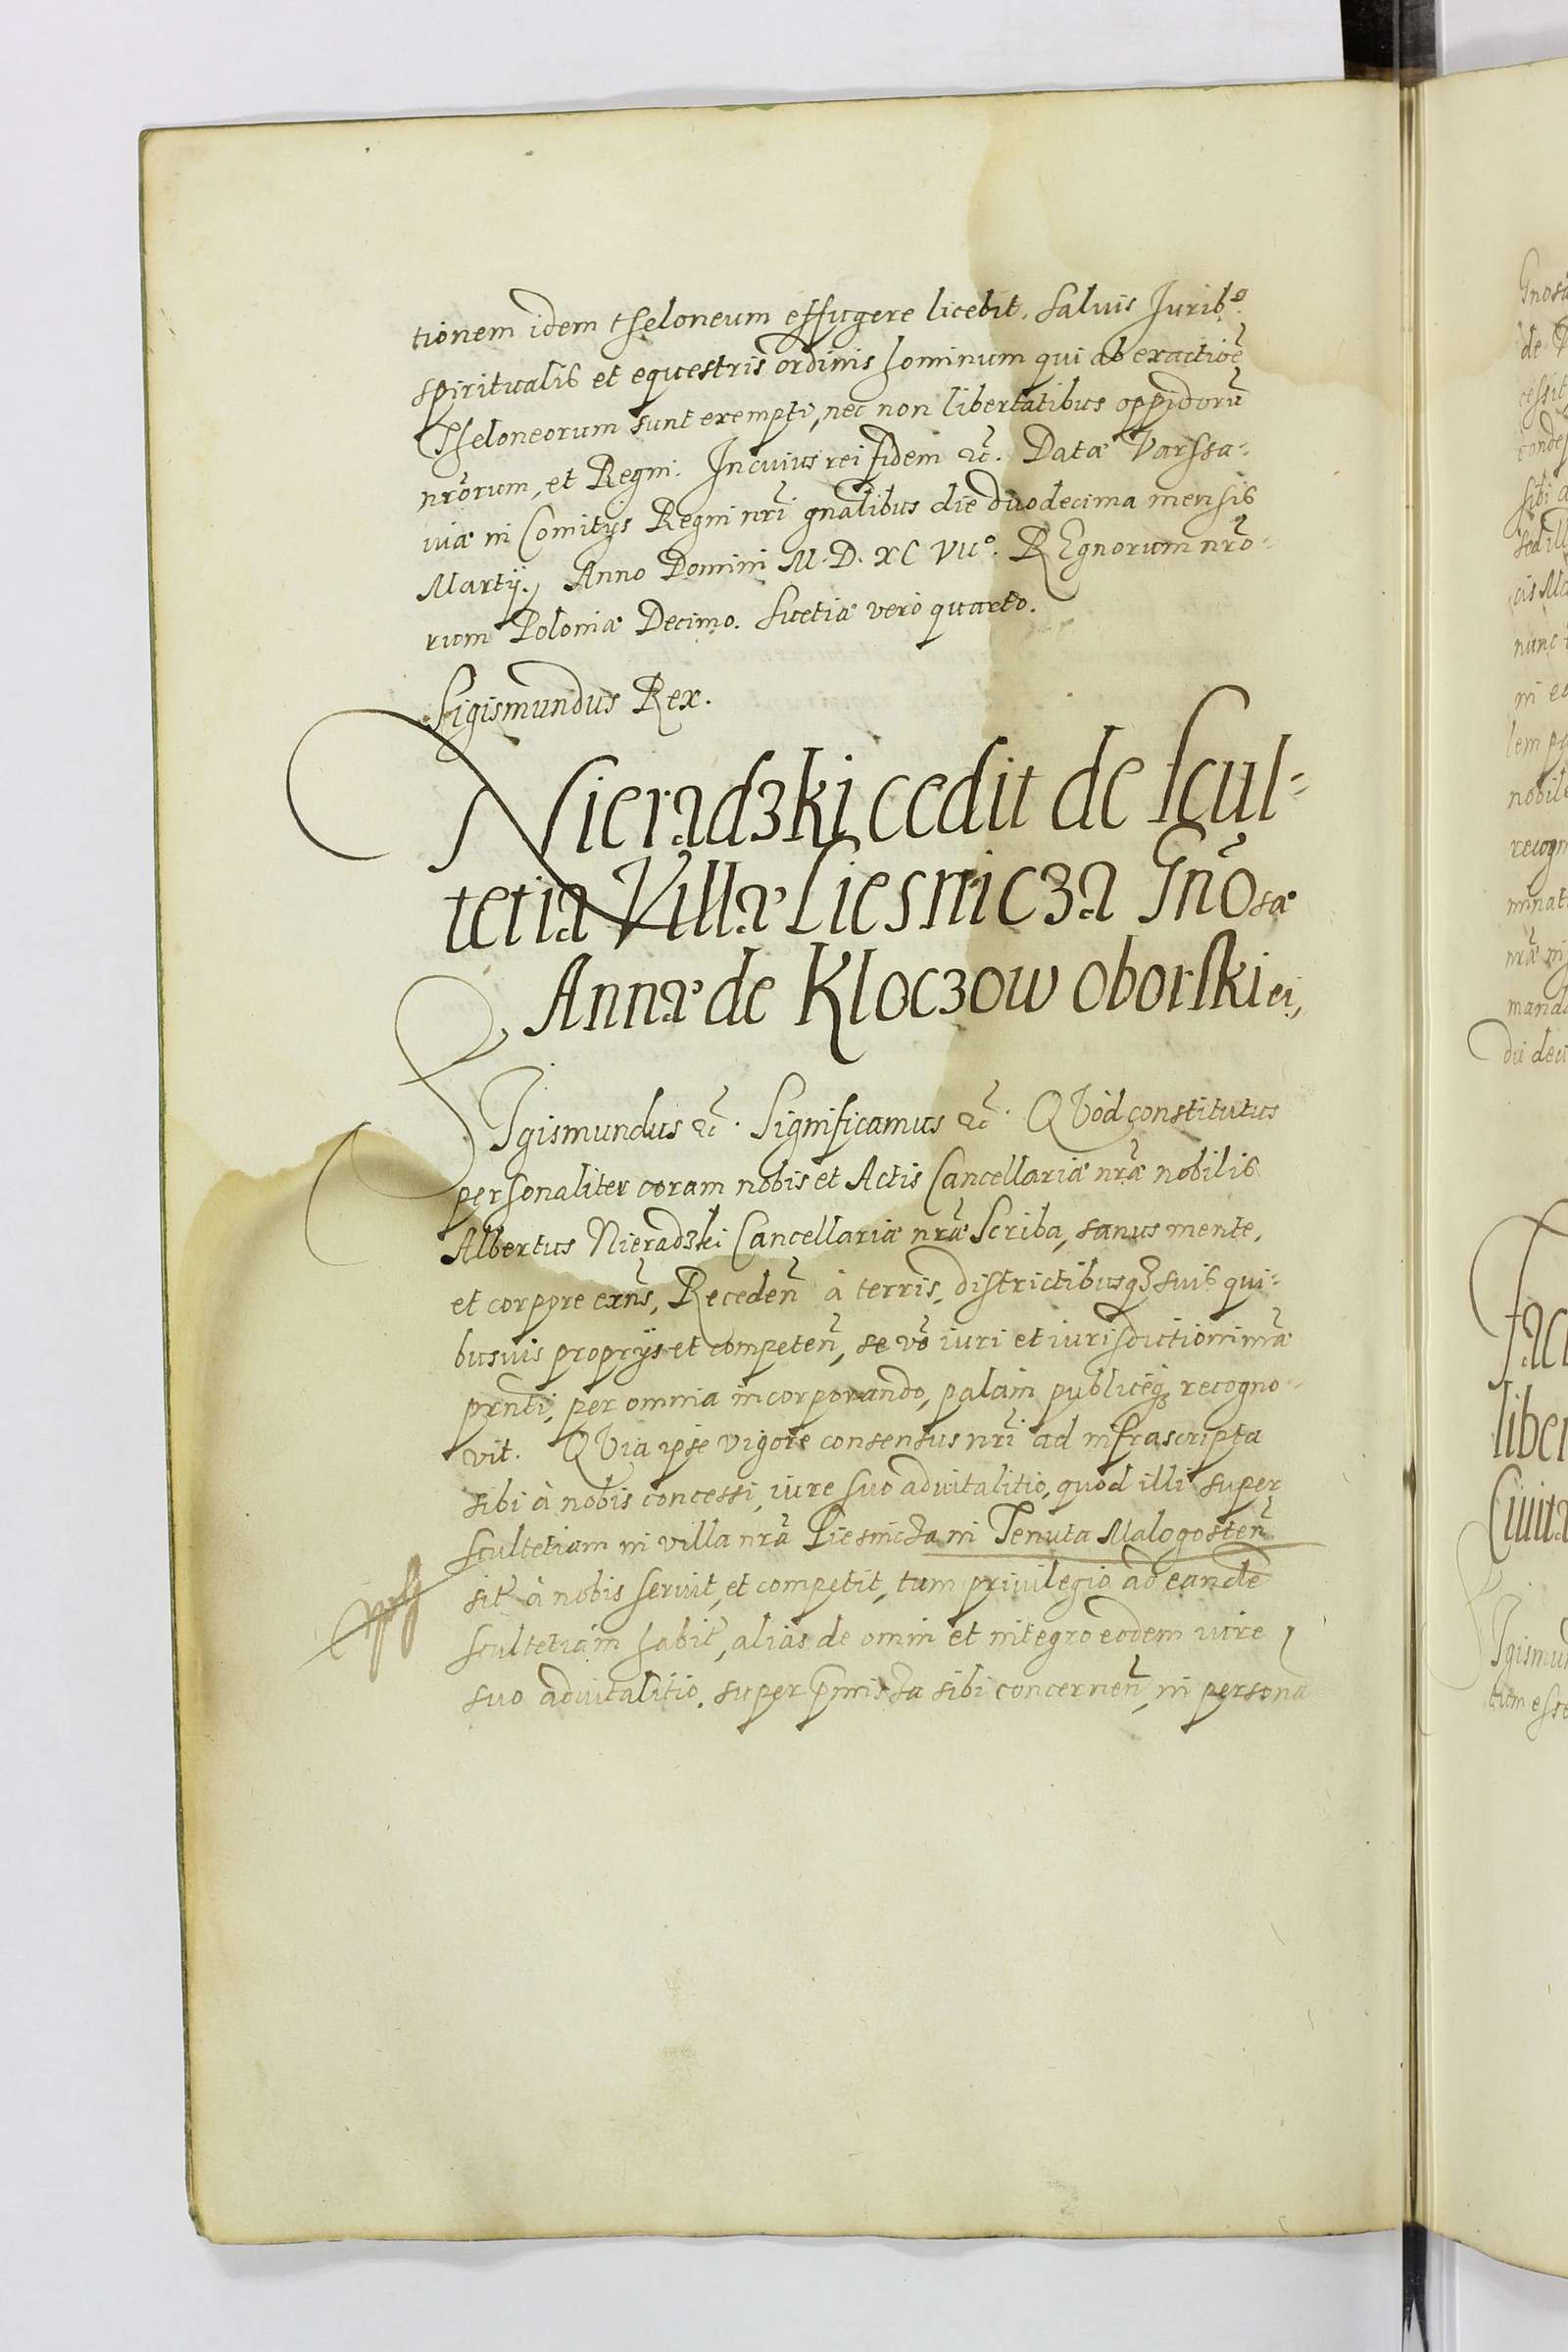 tionem idem theloneum effugere licebit. Saluis Jurib⁹
spiritualis et equestris ordinis hominum qui ab exactioē
Theloneorum sunt exempti, nec non libertatibus oppidorū
nr̃orum, et Regni. In cuius rei fidem ꝛc̃. Datæ Varssa-
uiæ in Comitijs Regni nr̃i gñalibus die duodecima mensis
Martij. Anno Domini M.D.XCVIIº. REgnorum nr̃o-
rum Poloniæ Decimo. Suetiæ vero quarto.
Sigismundus Rex.
Nieradzki cedit de scul-
tetia Villæ Liesnicza Gñosæ
Annæ de Kloczow oborskiei,
SIgismundus ꝛc̃. Significamus ꝛc̃. QVod constitutus
personaliter coram nobis et Actis Cancellariæ nr̃æ nobilis
Albertus Nieradzki Cancellariæ nr̃æ Scriba, sanus mente,
et corpore exñs, Recedeñ à terris, districtibusqꝫ suis qui-
busuis proprijs et competeñ, se vō iuri et iurisdictioni nr̃æ
prñti, per omnia incorporando, palam publiceqꝫ recogno-
vit. QVia ipse vigore consensus nr̃i ad infrascripta
sibi à nobis concessi, iure suo aduitalitio, quod illi super
scultetiam in villa nr̃a Liesnicza in Tenuta Malogosteñ
sit̃ à nobis seruit, et competit, tum priuilegio ad eandē
scultetiam habit̃, alias de omni et integro eodem iure
suo aduitalitio, super p̃missa sibi concerneñ, in persona
Gnosæ
de
cessit
conde
sibi a
sed ill
cis Ma
nunc
in eo
lem pa
nobile
recogn
minat
nr̃æ in
manda
dii deci
Fac
liber
Ciuita
Igismun
tum esse